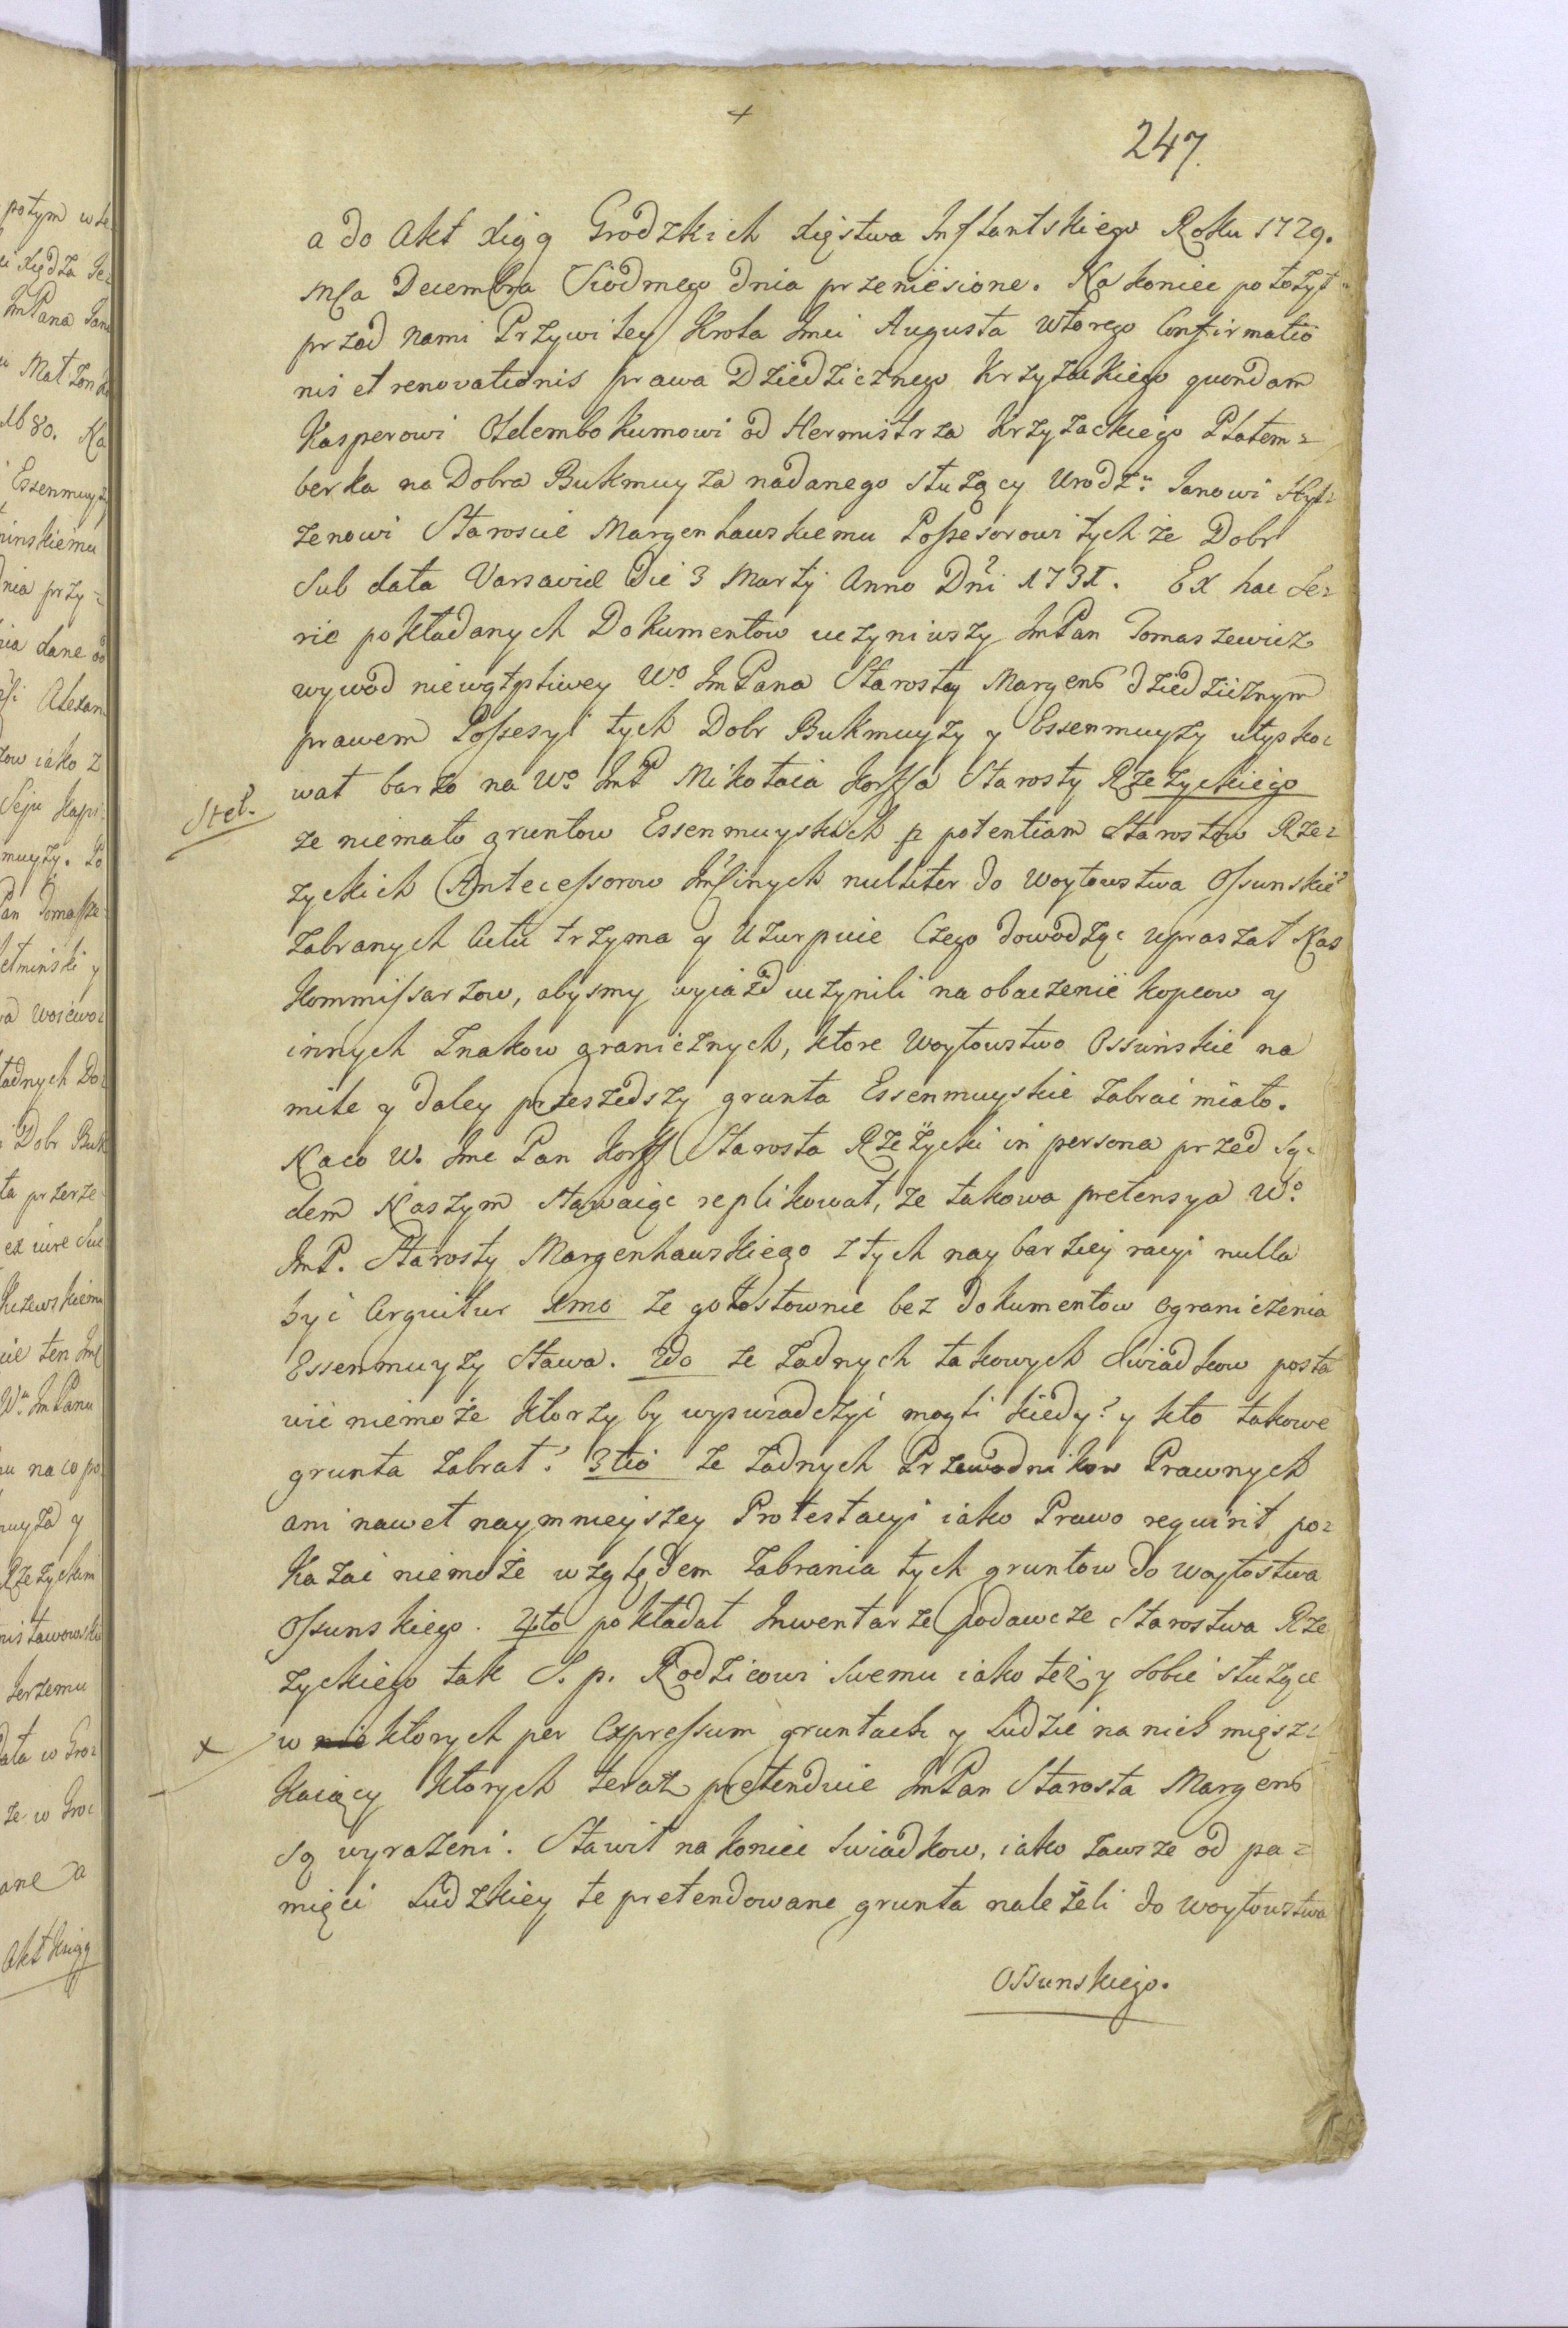 247.
a do Akt xiąg Grodzkich xięstwa Inflantskiego Roku 1729.
Msca Decembra Siodmego dnia przeniesione. Na koniec położył
przed nami Przywiley Krola Jmci Augusta wtorego Confirmatio
nis et renovationis prawa Dziedzicznego Krzyżackiego quondam
Kasperowi Ozelembokumowi od Hermistrza Krzyżackiego Platem=
berka na Dobra Bukmuyża nadanego służący Urodz: Janowi Hyl=
zenowi Staroscie Margenhauskiemu Possesorowi tychże Dobr
Sub data Varsaviæ Die 3 Martÿ Anno Dni 1731. Ex hac Se=
rie pokładanych Dokumentow uczyniwszy JmPan Tomaszewicz
wywod niewątpliwey Wo. JmPana Starosty Margenh dziedzicznym
prawem Possesyi tych Dobr Bukmuyży y Essenmuyży utysko=
wał barzo na Wo. JmP Mikołaia Korffa Starosty Rzeżyckiego
Stel.
ze niemało gruntow Essenmuyskich p potentiam Starostow Rze=
życkich Antecessorow Jmscinych nulliter do Woytowstwa Ossunskie
zabranych Actu trzyma y Uzurpuie Czego dowodząc upraszał Nas
Kommissarzow, abysmy wyiazd uczynili na obaczenie kopcow y
innych Znakow granicznych, ktore Woytowstwo Ossunskie na
mile y daley przeszedszy grunta Essenmuyskie zabrać miało.
Naco W. Jmc Pan Korff Starosta Rzeżycki in persona przed Są=
dem Naszym stawaiąc replikował, ze takowa pretensya Wo.
JmP. Starosty Margenhauskiego z tych naybarziey racyi nulla
być Arguitur 1mo ze gołosłownie bez dokumentow Ograniczenia
Essenmuyży Stawa. 2do ze żadnych takowych Swiadkow posta
wić niemoże ktorzy by wyswiadczyć mogli kiedy? y kto takowe
grunta zabrał? 3tio ze żadnych Przewodnikow Prawnych
ani nawet naymnieyszey Protestacyi iako Prawo requirit po=
kazać niemoże względem zabrania tych gruntow do Woytostwa
Ossunskiego. 4to pokładał Inwentarze podawcze Starostwa Rze
życkiego tak S. p. Rodzicowi Swemu iako też y Sobie służące
x
w nie ktorych per Expressum gruntach y Ludzie na nich mięsz=
kaiący ktorych teraz pretenduie JmPan Starosta Margenh
są wyrażeni. Stawił na koniec Swiadkow, iako zawsze od pa=
mięci Ludzkiey te pretendowane grunta należeli do Woytowstwa
Ossunskiego.